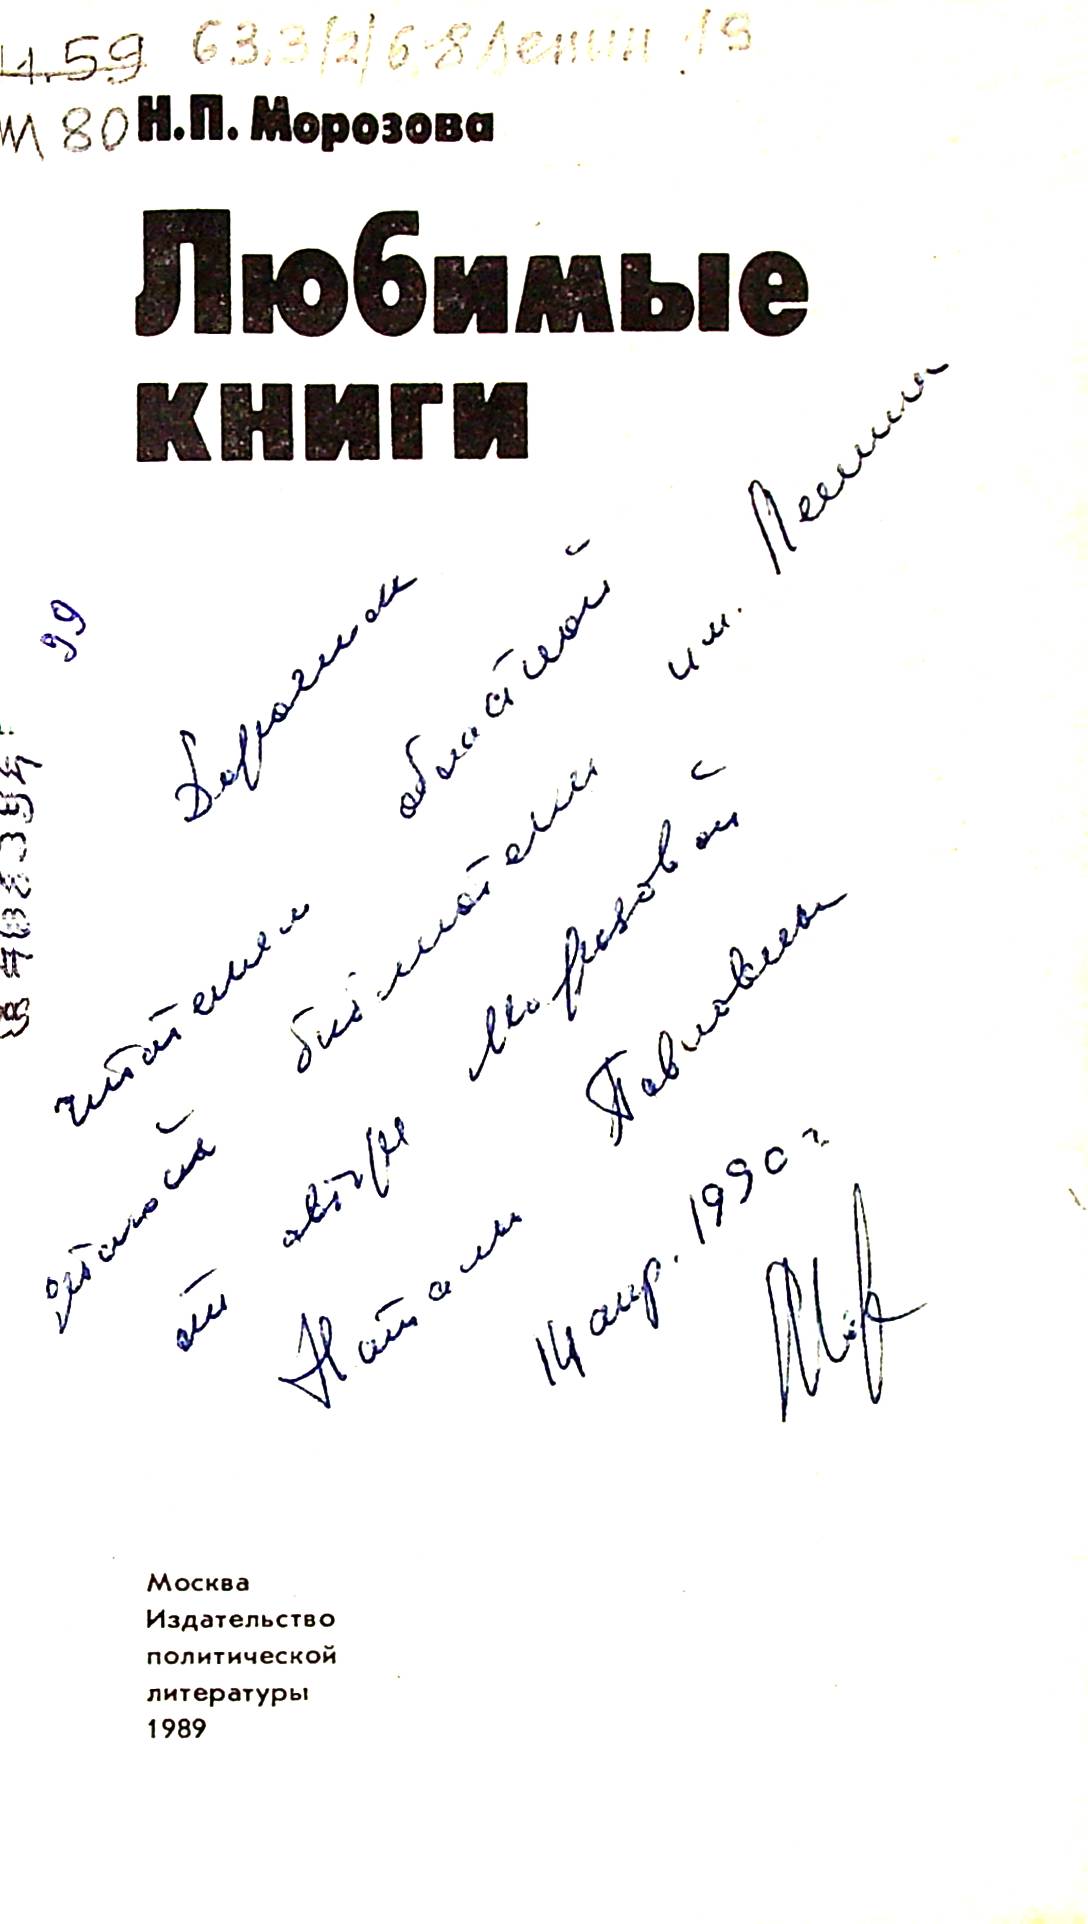 4.59 63.3/2/6-8 Ленин /9
М 80
Н.П. Морозова
Любимые
книги
99
Дорогим
читателям областной
библиотеки им. Ленина
от автора Морозовой
Натальи Павловны
14 апр. 1990 г
Москва
Издательство
политической
литературы
1989